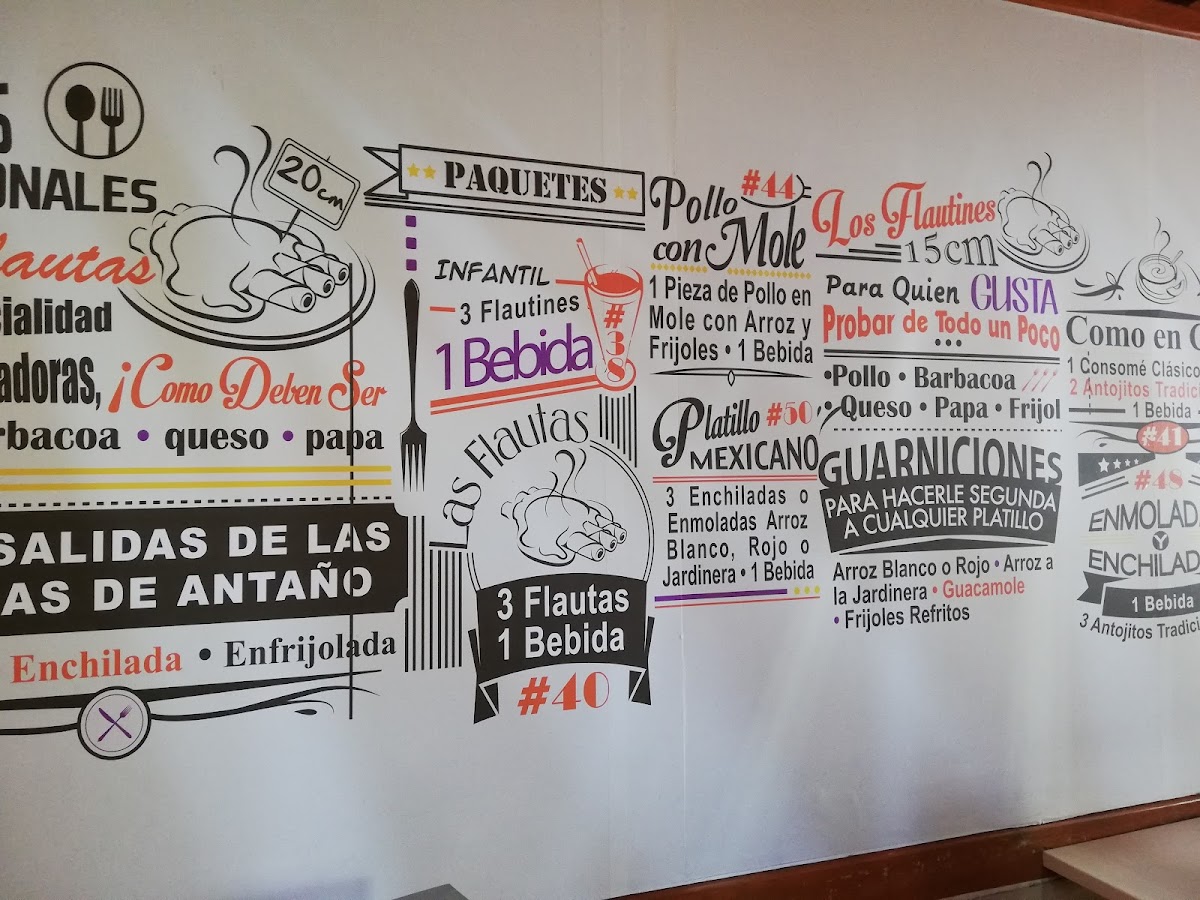 20cm
¡Como Deben Ser
• queso • papa
SALIDAS DE LAS
AS DE ANTAÑO
Enchilada • Enfrijolada
PAQUETES
INFANTIL
3 Flautines
1 Bebida
#38
Las Flautas
3 Flautas
1 Bebida
#40
Pollo #44
con Mole
1 Pieza de Pollo en
Mole con Arroz y
Frijoles • 1 Bebida
Platillo #50
MEXICANO
3 Enchiladas o
Enmoladas Arroz
Blanco, Rojo o
Jardinera • 1 Bebida
Los Flautines
15cm
Para Quien GUSTA
Probar de Todo un Poco
...
•Pollo • Barbacoa
• Queso • Papa • Frijol
GUARNICIONES
PARA HACERLE SEGUNDA
A CUALQUIER PLATILLO
Arroz Blanco o Rojo • Arroz a
la Jardinera • Guacamole
• Frijoles Refritos
Como en
1 Consomé Clásico
2 Antojitos
1 Bebida
#41
#48
Y
1 Bebida
3 Antojitos